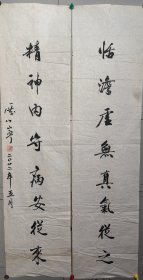 恬澹虛無真氣從之
精神内守病安從來
二〇二二年五月